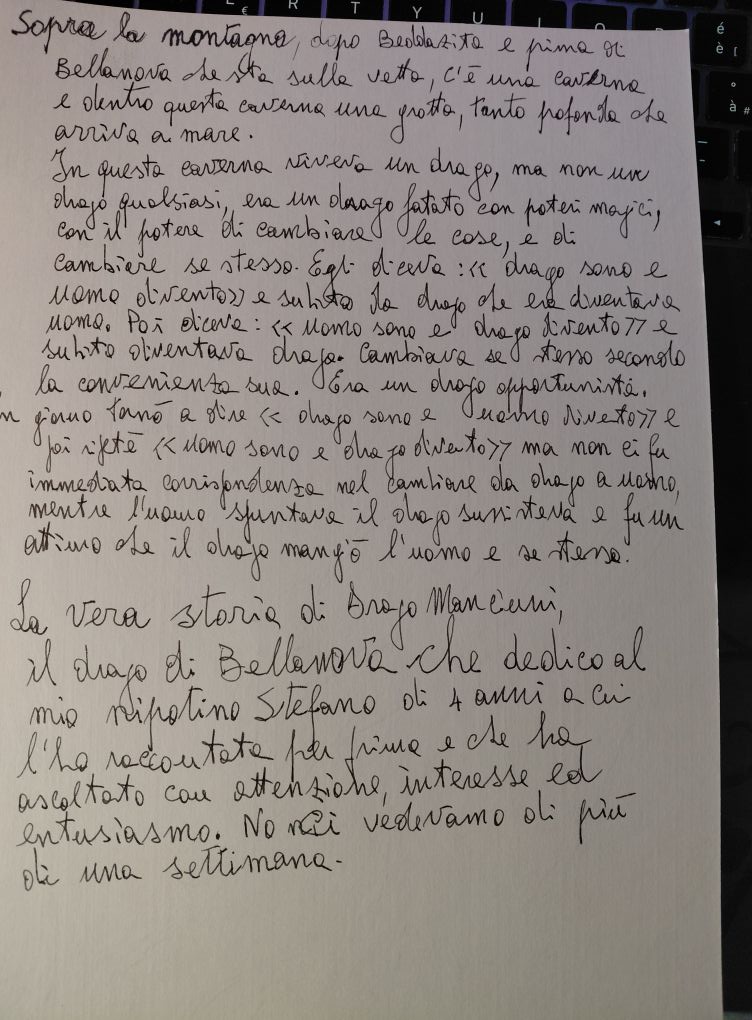 € R T Y U I O
é
è [
°
à #
Sopra la montagna, dopo Beddazita e pima di
Bellanova che sta sulla vetta, c'è una caverna
e dentro questa caverna una grotta, tanto pofonda che
arriva a mare.
In questa caverna viveva un drago, ma non un
drago qualsiasi, era un drago fatato con poteri magici,
con il potere di cambiare le cose, e di
cambiare se stesso. Egli diceva: << drago sono e
uomo divento>> e subito da drago che era diventava
uomo. Poi diceva: << uomo sono e drago divento>> e
subito diventava drago. Cambiava se stesso secondo
la convenienza sua. Era un drago opportunista.
n giorno tornò a dire << drago sono e uomo divento>> e
poi ripetè << uomo sono e drago divento>> ma non ci fu
immediata corrispondenza nel cambiare da drago a uomo,
mentre l'uomo spuntava il drago sussisteva e fu un
attimo che il drago mangiò l'uomo e se stesso.
La vera storia di Drago Manciuni,
il drago di Bellanova che dedico al
mio nipotino Stefano di 4 anni a cui
l'ho raccontata per prima e che ha
ascoltato con attenzione, interesse ed
entusiasmo. Non ci vedevamo di più
di una settimana.